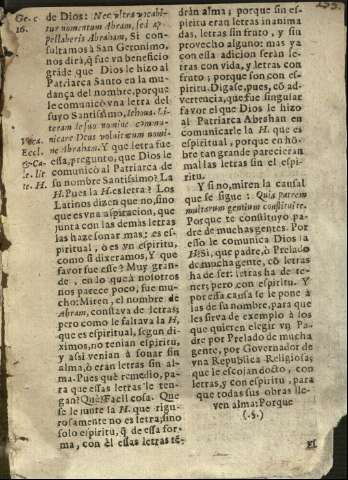 Ge. c
16.
de Dios: Nec ultra vocabi-
tur nomentum Abram, sed ap-
pellaberis Abraham, Si con-
sultamos à San Geronimo,
nos dirà, q̃ fue vn beneficio
grãde que Dios le hizo al
Patriarca Santo en la mu-
dança del nombre, porque
le comunicò vna letra del
suyo Santissimo, Iehoua. Li-
teram de suo nomine commu-
nicare Deus voluit cum nomi-
ne Abraham. Y que letra fue
essa, pregunto, que Dios le
comunicò al Patriarca de
su nombre Santissimo? La
H. Pues la H. es letra? Los
Latinos dizen que no, sino
que es vna aspiracion, que
junta con las demàs letras
las haze sonar mas: es es-
piritual, ò es vn espiritu,
como si dixeramos, Y que
favor fue esse? Muy gran-
de, en lo que à nosotros
nos parece poco, fue mu-
cho: Miren, el nombre de
Abram, constava de letras;
pero como le faltava la H,
que es espiritual, segun di-
ximos, no tenian espiritu,
y assi venian à sonar sin
alma, ò eran letras sin al-
ma. Pues què remedio, pa-
ra que essas letras le ten-
gan? Què? Facil cosa. Que
se le junte la H. que rigu-
rosamente no es letra, sino
solo espiritu, q̃ de essa for-
ma, con èl essas letras tẽ-
Voca.
Eccl.
&-Ca-
t. lit
te. H.
dràn alma; porque sin es-
piritu eran letras inanima
das, letras sin fruto, y sin
provecho alguno: mas ya
con essa adicion seràn le-
tras con vida, y letras con
fruto; porque son con es-
piritu. Digase, pues, cõ ad-
vertencia, que fue singular
favor el que Dios le hizo
al Patriarca Abrahan en
comunicarle la H. que es
espiritual, porque en hõ-
bre tan grande parecieran
mal las letras sin el espi-
ritu.
Y si no, miren la causal
que se sigue: Quia patrem
multarum gentium constitui te.
Porque te constituyo pa-
dre de muchas gentes. Por
esso le comunica Dios la
H? Si, que padre, ò Prelado
de mucha gente, cõ letras
ha de ser: letras ha de te-
ner; pero con espiritu. Y
por essa causa se le pone à
las de su nombre, para que
les sirva de exemplo à los
que quieren elegir vn Pa-
dre por Prelado de mucha
gente, por Governador de
vna Republica Religiosa;
que le escojan docto, con
letras, y con espiritu, para
que todas sus obras lle-
ven alma: Porque
(.§.)
El